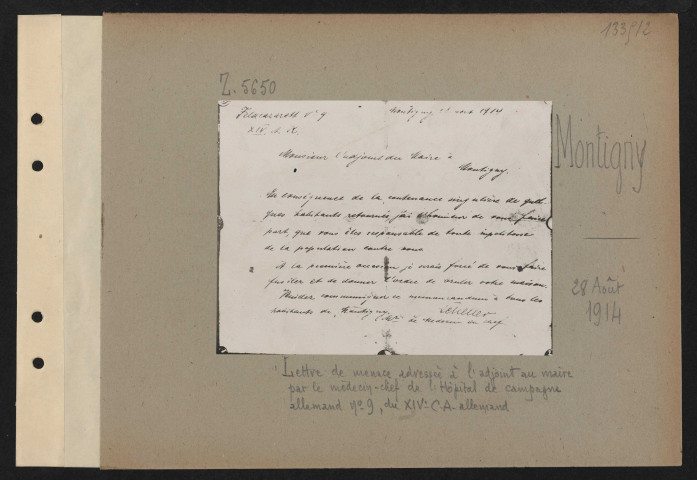 133512
Z. 5650
Feldlazarett No 9
XIV. A. K.
Montigny 28 août 1914
Monsieur l'adjoint du Maire à
Montigny.
En conséquence de la contenance singulière de quel-
ques habitants retournés, j'ai l'honneur de vous faire
part, que vous êtes responsable de toute impolitesse
de la population contre nous
A la première occasion je serais forcé de vous faire
fusiller et de donner l'ordre de brûler votre maison.
Veuillez communiquer ce memorandum à tous les
habitants de Montigny.
le médecin en chef
Montigny
28 Août
1914
Lettre de menace adressée à l'adjoint au maire
par le médecin-chef de l'Hôpital de campagne
allemand No 9, du XIVe C.A. allemand